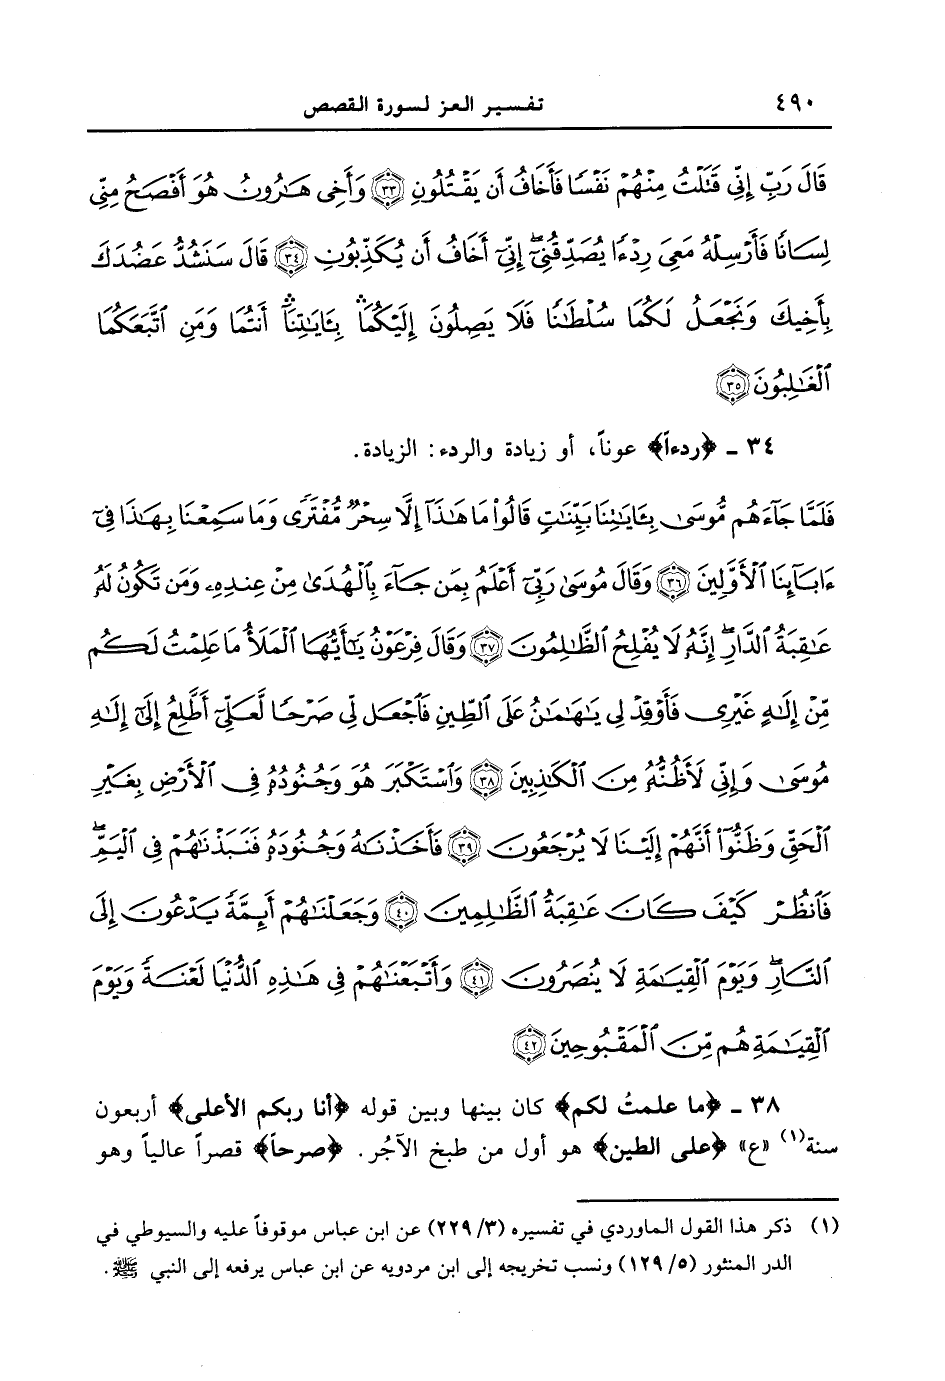 ٤٩٠ تفسير العز لسورة القصص
قَالَ رَبِّ إِنِّي قَتَلْتُ مِنْهُمْ نَفْسًا فَأَخَافُ أَن يَقْتُلُونِ ﴿٣٣﴾ وَأَخِى هَـٰرُونُ هُوَ أَفْصَحُ مِنِّى
لِسَانًا فَأَرْسِلْهُ مَعِىَ رِدْءًا يُصَدِّقُنِىٓ ۖ إِنِّىٓ أَخَافُ أَن يُكَذِّبُونِ ﴿٣٤﴾ قَالَ سَنَشُدُّ عَضُدَكَ
بِأَخِيكَ وَنَجْعَلُ لَكُمَا سُلْطَـٰنًا فَلَا يَصِلُونَ إِلَيْكُمَا ۛ بِـَٔايَـٰتِنَآ ۛ أَنتُمَا وَمَنِ ٱتَّبَعَكُمَا
ٱلْغَـٰلِبُونَ ﴿٣٥﴾
٣٤ - ﴿ردءاً﴾ عوناً، أو زيادة والردء: الزيادة.
فَلَمَّا جَآءَهُم مُّوسَىٰ بِـَٔايَـٰتِنَا بَيِّنَـٰتٍ قَالُوا۟ مَا هَـٰذَآ إِلَّا سِحْرٌ مُّفْتَرًى وَمَا سَمِعْنَا بِهَـٰذَا فِىٓ
ءَابَآئِنَا ٱلْأَوَّلِينَ ﴿٣٦﴾ وَقَالَ مُوسَىٰ رَبِّىٓ أَعْلَمُ بِمَن جَآءَ بِٱلْهُدَىٰ مِنْ عِندِهِۦ وَمَن تَكُونُ لَهُۥ
عَـٰقِبَةُ ٱلدَّارِ ۖ إِنَّهُۥ لَا يُفْلِحُ ٱلظَّـٰلِمُونَ ﴿٣٧﴾ وَقَالَ فِرْعَوْنُ يَـٰٓأَيُّهَا ٱلْمَلَأُ مَا عَلِمْتُ لَكُم
مِّنْ إِلَـٰهٍ غَيْرِى فَأَوْقِدْ لِى يَـٰهَـٰمَـٰنُ عَلَى ٱلطِّينِ فَٱجْعَل لِّى صَرْحًا لَّعَلِّىٓ أَطَّلِعُ إِلَىٰٓ إِلَـٰهِ
مُوسَىٰ وَإِنِّى لَأَظُنُّهُۥ مِنَ ٱلْكَـٰذِبِينَ ﴿٣٨﴾ وَٱسْتَكْبَرَ هُوَ وَجُنُودُهُۥ فِى ٱلْأَرْضِ بِغَيْرِ
ٱلْحَقِّ وَظَنُّوٓا۟ أَنَّهُمْ إِلَيْنَا لَا يُرْجَعُونَ ﴿٣٩﴾ فَأَخَذْنَـٰهُ وَجُنُودَهُۥ فَنَبَذْنَـٰهُمْ فِى ٱلْيَمِّ ۖ
فَٱنظُرْ كَيْفَ كَانَ عَـٰقِبَةُ ٱلظَّـٰلِمِينَ ﴿٤٠﴾ وَجَعَلْنَـٰهُمْ أَئِمَّةً يَدْعُونَ إِلَى
ٱلنَّارِ ۖ وَيَوْمَ ٱلْقِيَـٰمَةِ لَا يُنصَرُونَ ﴿٤١﴾ وَأَتْبَعْنَـٰهُمْ فِى هَـٰذِهِ ٱلدُّنْيَا لَعْنَةً ۖ وَيَوْمَ
ٱلْقِيَـٰمَةِ هُم مِّنَ ٱلْمَقْبُوحِينَ ﴿٤٢﴾
٣٨ - ﴿ما علمتُ لكم﴾ كان بينها وبين قوله ﴿أنا ربكم الأعلى﴾ أربعون
سنة(١) «ع» ﴿على الطين﴾ هو أول من طبخ الآجُر. ﴿صرحاً﴾ قصراً عالياً وهو
(١) ذكر هذا القول الماوردي في تفسيره (٢٢٩/٣) عن ابن عباس موقوفاً عليه والسيوطي في
الدر المنثور (١٢٩/٥) ونسب تخريجه إلى ابن مردويه عن ابن عباس يرفعه إلى النبي ﷺ.